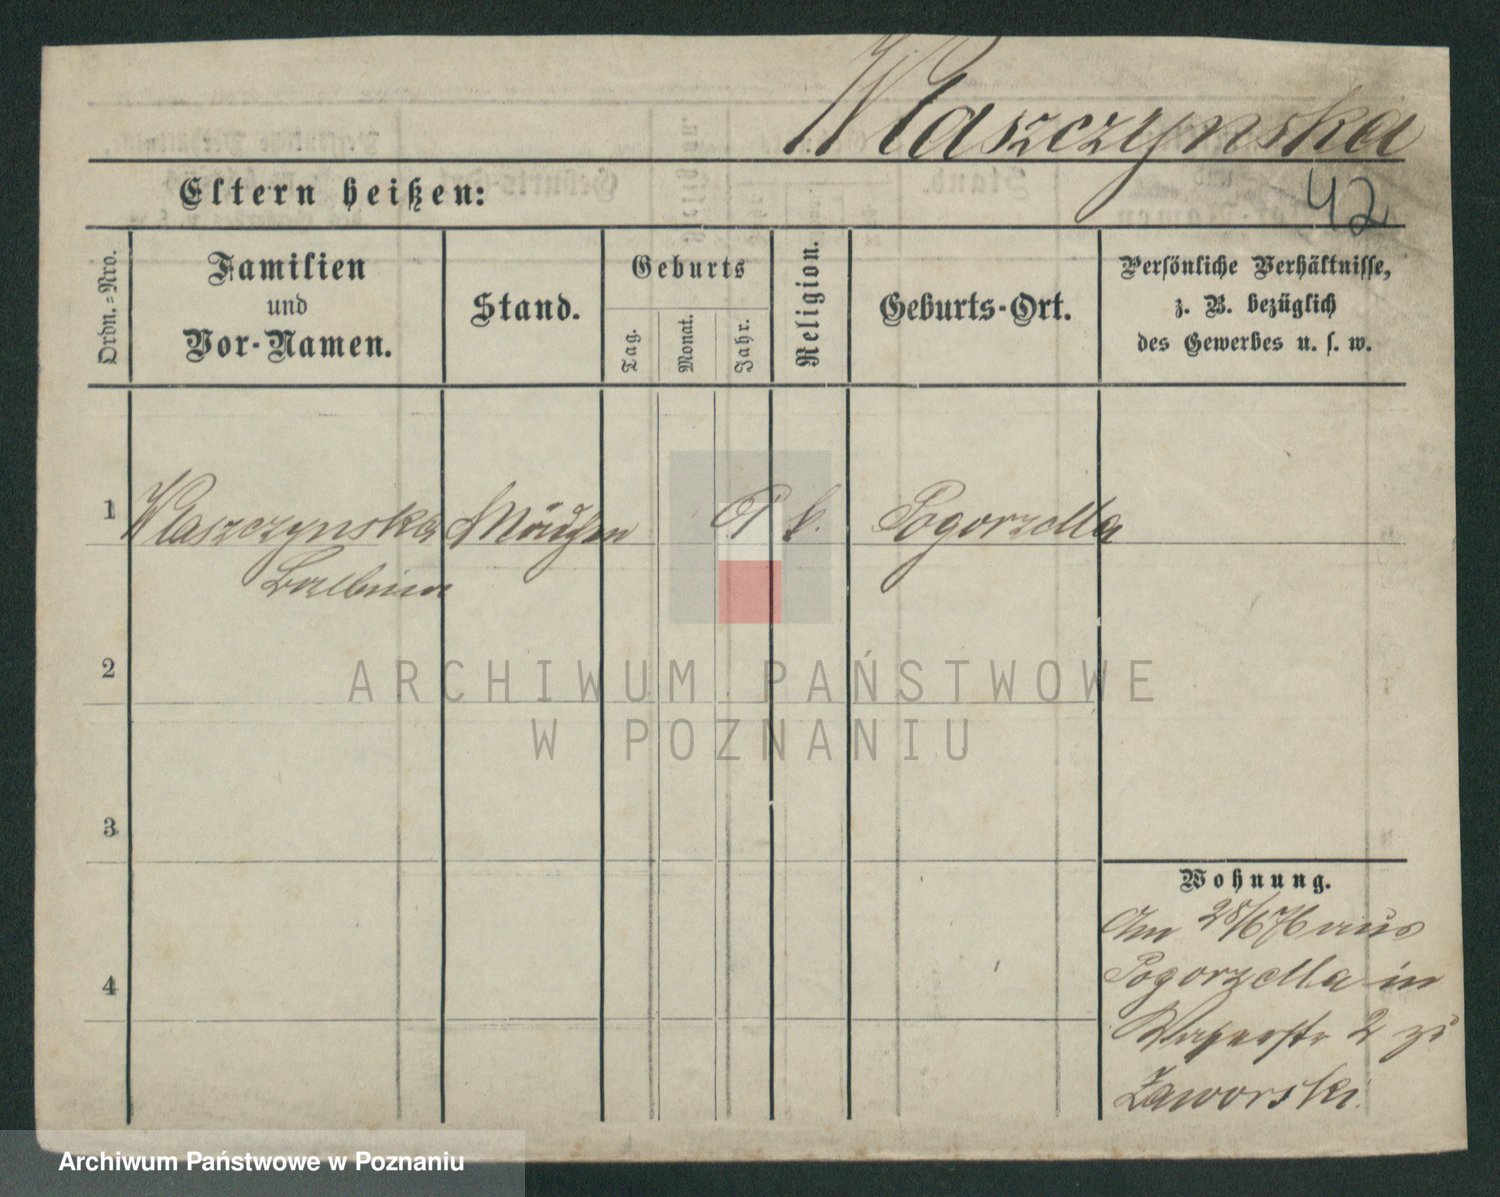 Wlaszczynska
42
Eltern heißen:
Ordn.=Nro.
Familien
und
Vor-Namen.
Stand.
Geburts
Tag.
Monat.
Jahr.
Religion.
Geburts-Ort.
Persönliche Verhältnisse,
z. B. bezüglich
des Gewerbes u. s. w.
1 Wlaszczynska Mädchen k. Pogorzella
Balbina
2
3
4
Wohnung.
Am 28/6 76 aus
Pogorzella in
Wasserstr 2 zu
Zaworski.
ARCHIWUM PAŃSTWOWE
W POZNANIU
Archiwum Państwowe w Poznaniu